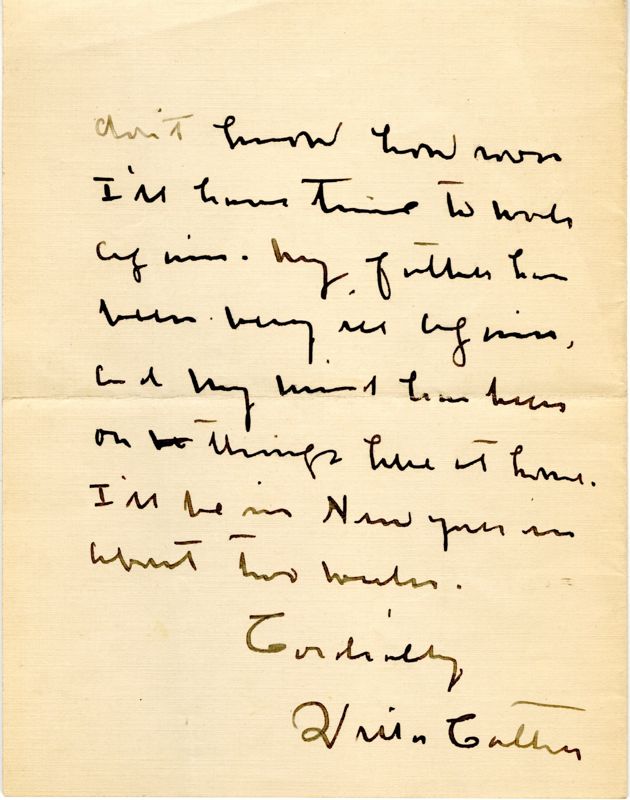 don't know how soon
I'll have time to work
again. My father has
been very ill again,
and my mind has been
on things here at home.
I'll be in New York in
about two weeks.
Cordially,
Willa Cather